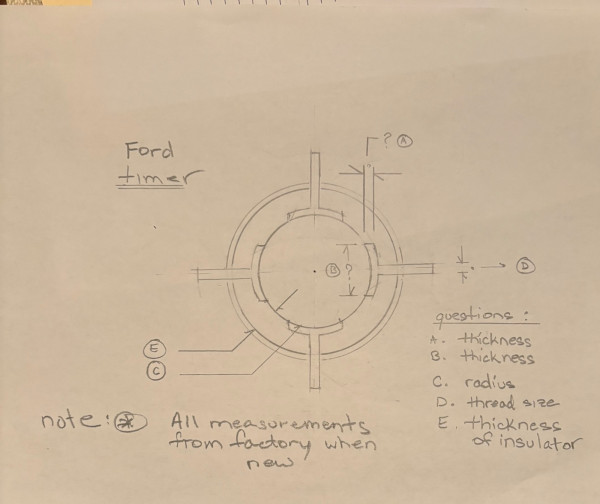 Ford
timer
? A
B ?
D
E
C
questions :
A. thickness
B. thickness
C. radius
D. thread size
E. thickness
of insulator
note: * All measurements
from factory when
new